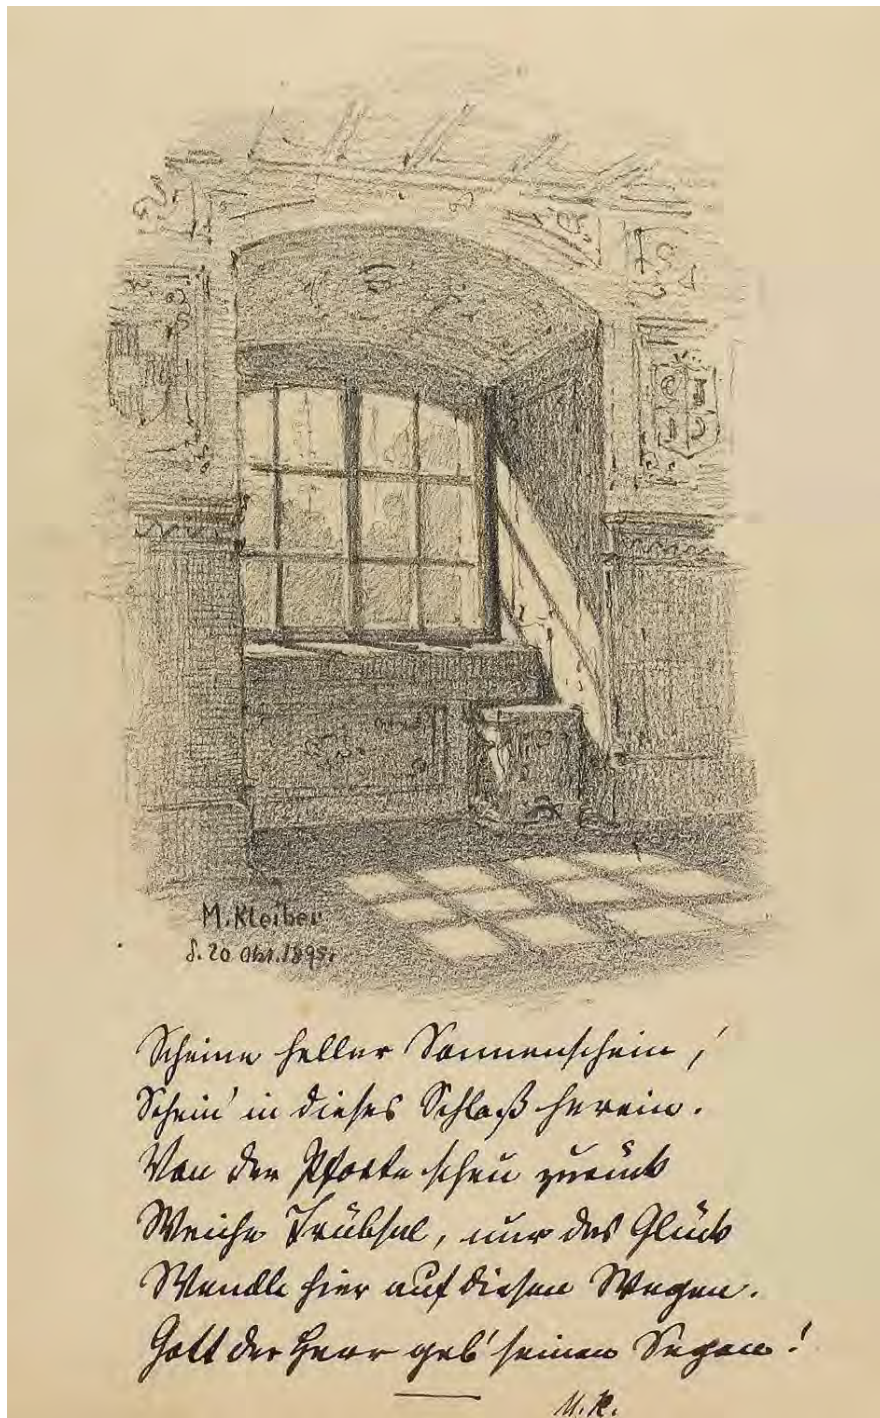 M. Kleiber
d. 20 Okt. 1895.
Scheine heller Sonnenschein,!
Schein' in dieses Schloß herein.
Von der Pforte scheu zurück
Weiche Trübsal, nur das Glück
Wandle hier auf diesen Wegen.
Gott der Herr geb' seinen Segen!
M. K.